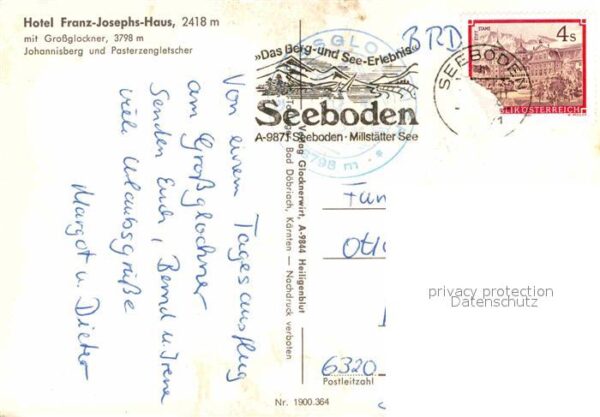 Hotel Franz-Josephs-Haus, 2418 m
mit Großglockner, 3798 m
Johannisberg und Pasterzengletscher
Von einem Tagesausflug
am Großglockner
senden Euch, Bernd u. Irene
viele Urlaubsgrüße
Margot u. Dieter
»Das Berg- und See-Erlebnis«
Seeboden
A-9871 Seeboden · Millstätter See
3798 m
BRD
SEEBODEN
STAMS
4 s
REPUBLIK ÖSTERREICH
Verlag Glocknerwirt, A-9844 Heiligenblut
Bad Döbriach, Kärnten — Nachdruck verboten
6320
Postleitzahl
Nr. 1900.364
privacy protection
Datenschutz